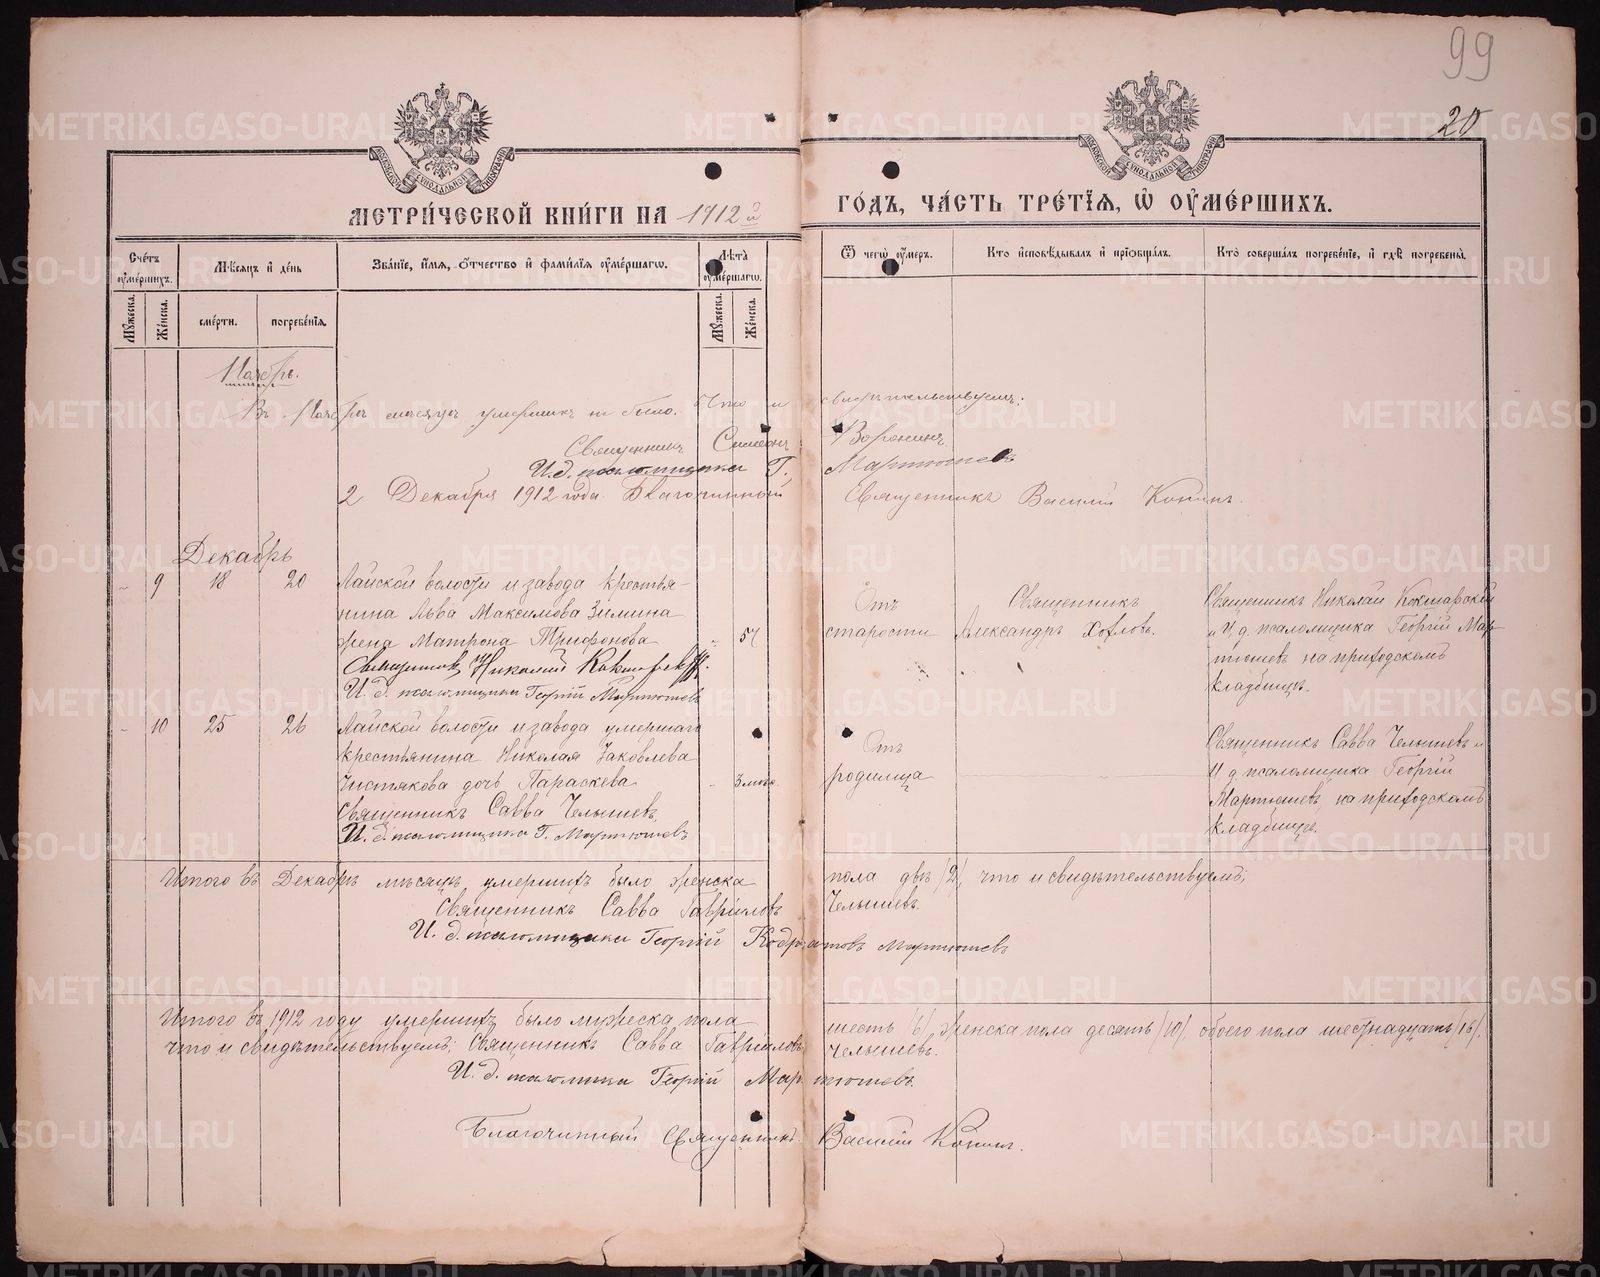 99
20
МОСКОВСКОЙ СѴНОДАЛЬНОЙ ТИПОГРАФІИ
МОСКОВСКОЙ СѴНОДАЛЬНОЙ ТИПОГРАФІИ
МЕТРИ́ЧЕСКОЙ КНИ́ГИ НА 1912й ГО́ДЪ, ЧА́СТЬ ТРЕ́ТІѦ, Ѡ҆ ОУ҆МЕ́РШИХЪ.
Сче́тъ оу҆ме́ршихъ.
Мѣ́сяцъ и҆ де́нь
Зва́нїе, и҆́мѧ, ѻ҆́тчество и҆ фами́лїѧ оу҆ме́ршагѡ.
Лѣта̀ оу҆ме́ршагѡ.
Ѿ чегѡ̀ оу҆́меръ.
Кто̀ и҆сповѣ́дывалъ и҆ прїѡбща́лъ.
Кто̀ соверша́лъ погребе́нїе, и҆ гдѣ̀ погребены̀.
Мꙋ́жеска.
Же́нска.
сме́рти.
погребе́нїѧ.
Мꙋ́жеска.
Же́нска.
Ноябрь.
Въ Ноябрѣ мѣсяцѣ умершихъ не было. Что и свидѣтельствуемъ:
Священникъ Симеонъ Воронинъ
И.д. псаломщика Г. Мартюшевъ
2 Декабря 1912 года Благочинный Священникъ Василій Конинъ.
Декабрь
- 9 18 20
Лайской волости и завода крестья-
нина Льва Максимова Зимина
жена Матрона Трифонова
- 57
Священникъ Николай Кокшарскій.
И.д. псаломщика Георгій Мартюшевъ
Отъ
старости
Священникъ
Александръ Хохловъ.
Священникъ Николай Кокшарскій
и И,д. псаломщика Георгій Мар-
тюшевъ на приходскомъ
кладбищѣ.
- 10 25 26
Лайской волости и завода умершаго
крестьянина Николая Іаковлева
Чистякова дочь Параскева
- 3 мѣс.
Священникъ Савва Челышевъ,
И.д. псаломщика Г. Мартюшевъ
Отъ
родимца
Священникъ Савва Челышевъ и
И д псаломщика Георгій
Мартюшевъ на приходскомъ
кладбищѣ.
Итого въ Декабрѣ мѣсяцѣ умершихъ было женска пола двѣ /2/, что и свидѣтельствуемъ;
Священникъ Савва Гавріиловъ Челышевъ.
И. д. псаломщика Георгій Кодратовъ Мартюшевъ
Итого въ 1912 году умершихъ было мужеска пола шесть /6/, женска пола десять /10/ обоего пола шестнадцать /16/.
что и свидѣтельствуемъ; Священникъ Савва Гавріиловъ Челышевъ.
И. д. псаломщика Георгій Мартюшевъ.
Благочинный Священникъ Василій Конинъ.
METRIKI.GASO-URAL.RU